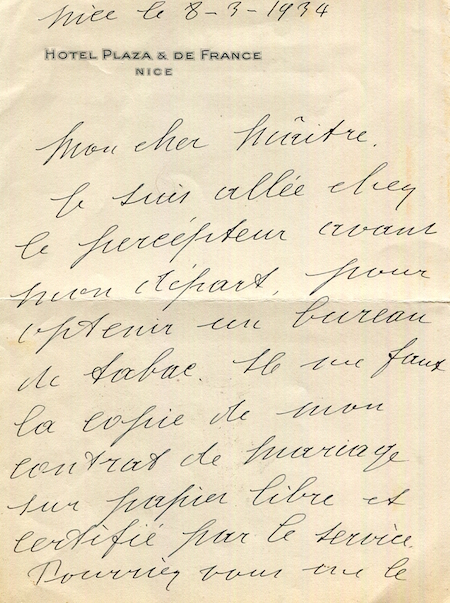 Nice le 8-3-1934
HOTEL PLAZA & DE FRANCE
NICE
Mon cher Maître.
Je suis allée chez
le percépteur avant
mon départ, pour
optenir un bureau
de tabac. Il me faut
la copie de mon
contrat de mariage
sur papier libre et
certifié par le service.
Pourriez vous me le